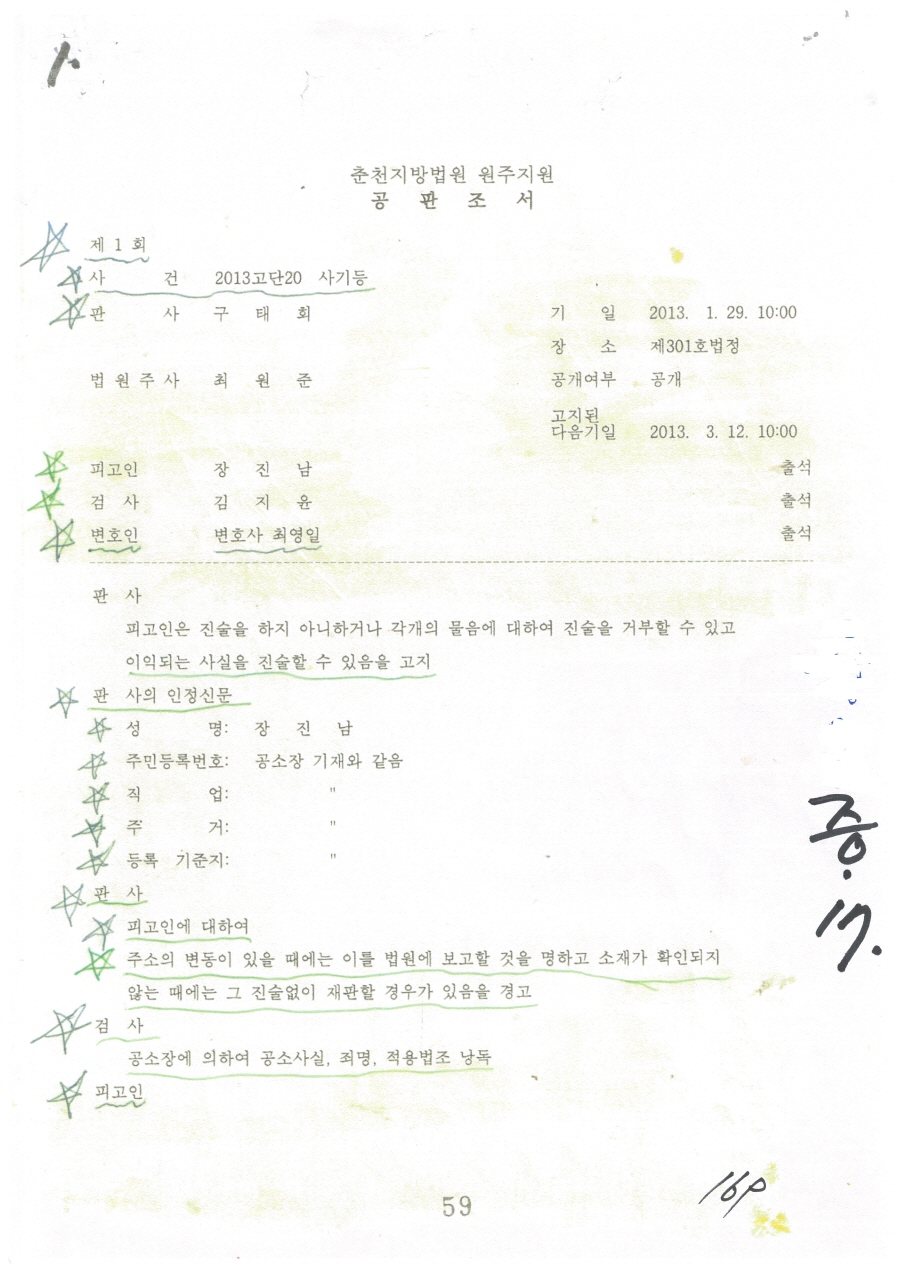 1.
춘천지방법원 원주지원
공 판 조 서
제 1 회
사 건 2013고단20 사기등
판 사 구 태 회 기 일 2013. 1. 29. 10:00
장 소 제301호법정
법 원 주 사 최 원 준 공개여부 공개
고지된
다음기일 2013. 3. 12. 10:00
피고인 장 진 남 출석
검 사 김 지 윤 출석
변호인 변호사 최영일 출석
판 사
피고인은 진술을 하지 아니하거나 각개의 물음에 대하여 진술을 거부할 수 있고
이익되는 사실을 진술할 수 있음을 고지
판 사의 인정신문
성 명: 장 진 남
주민등록번호: 공소장 기재와 같음
직 업: "
주 거: "
등록 기준지: "
판 사
피고인에 대하여
주소의 변동이 있을 때에는 이를 법원에 보고할 것을 명하고 소재가 확인되지
않는 때에는 그 진술없이 재판할 경우가 있음을 경고
검 사
공소장에 의하여 공소사실, 죄명, 적용법조 낭독
피고인
증. 17.
59
16p